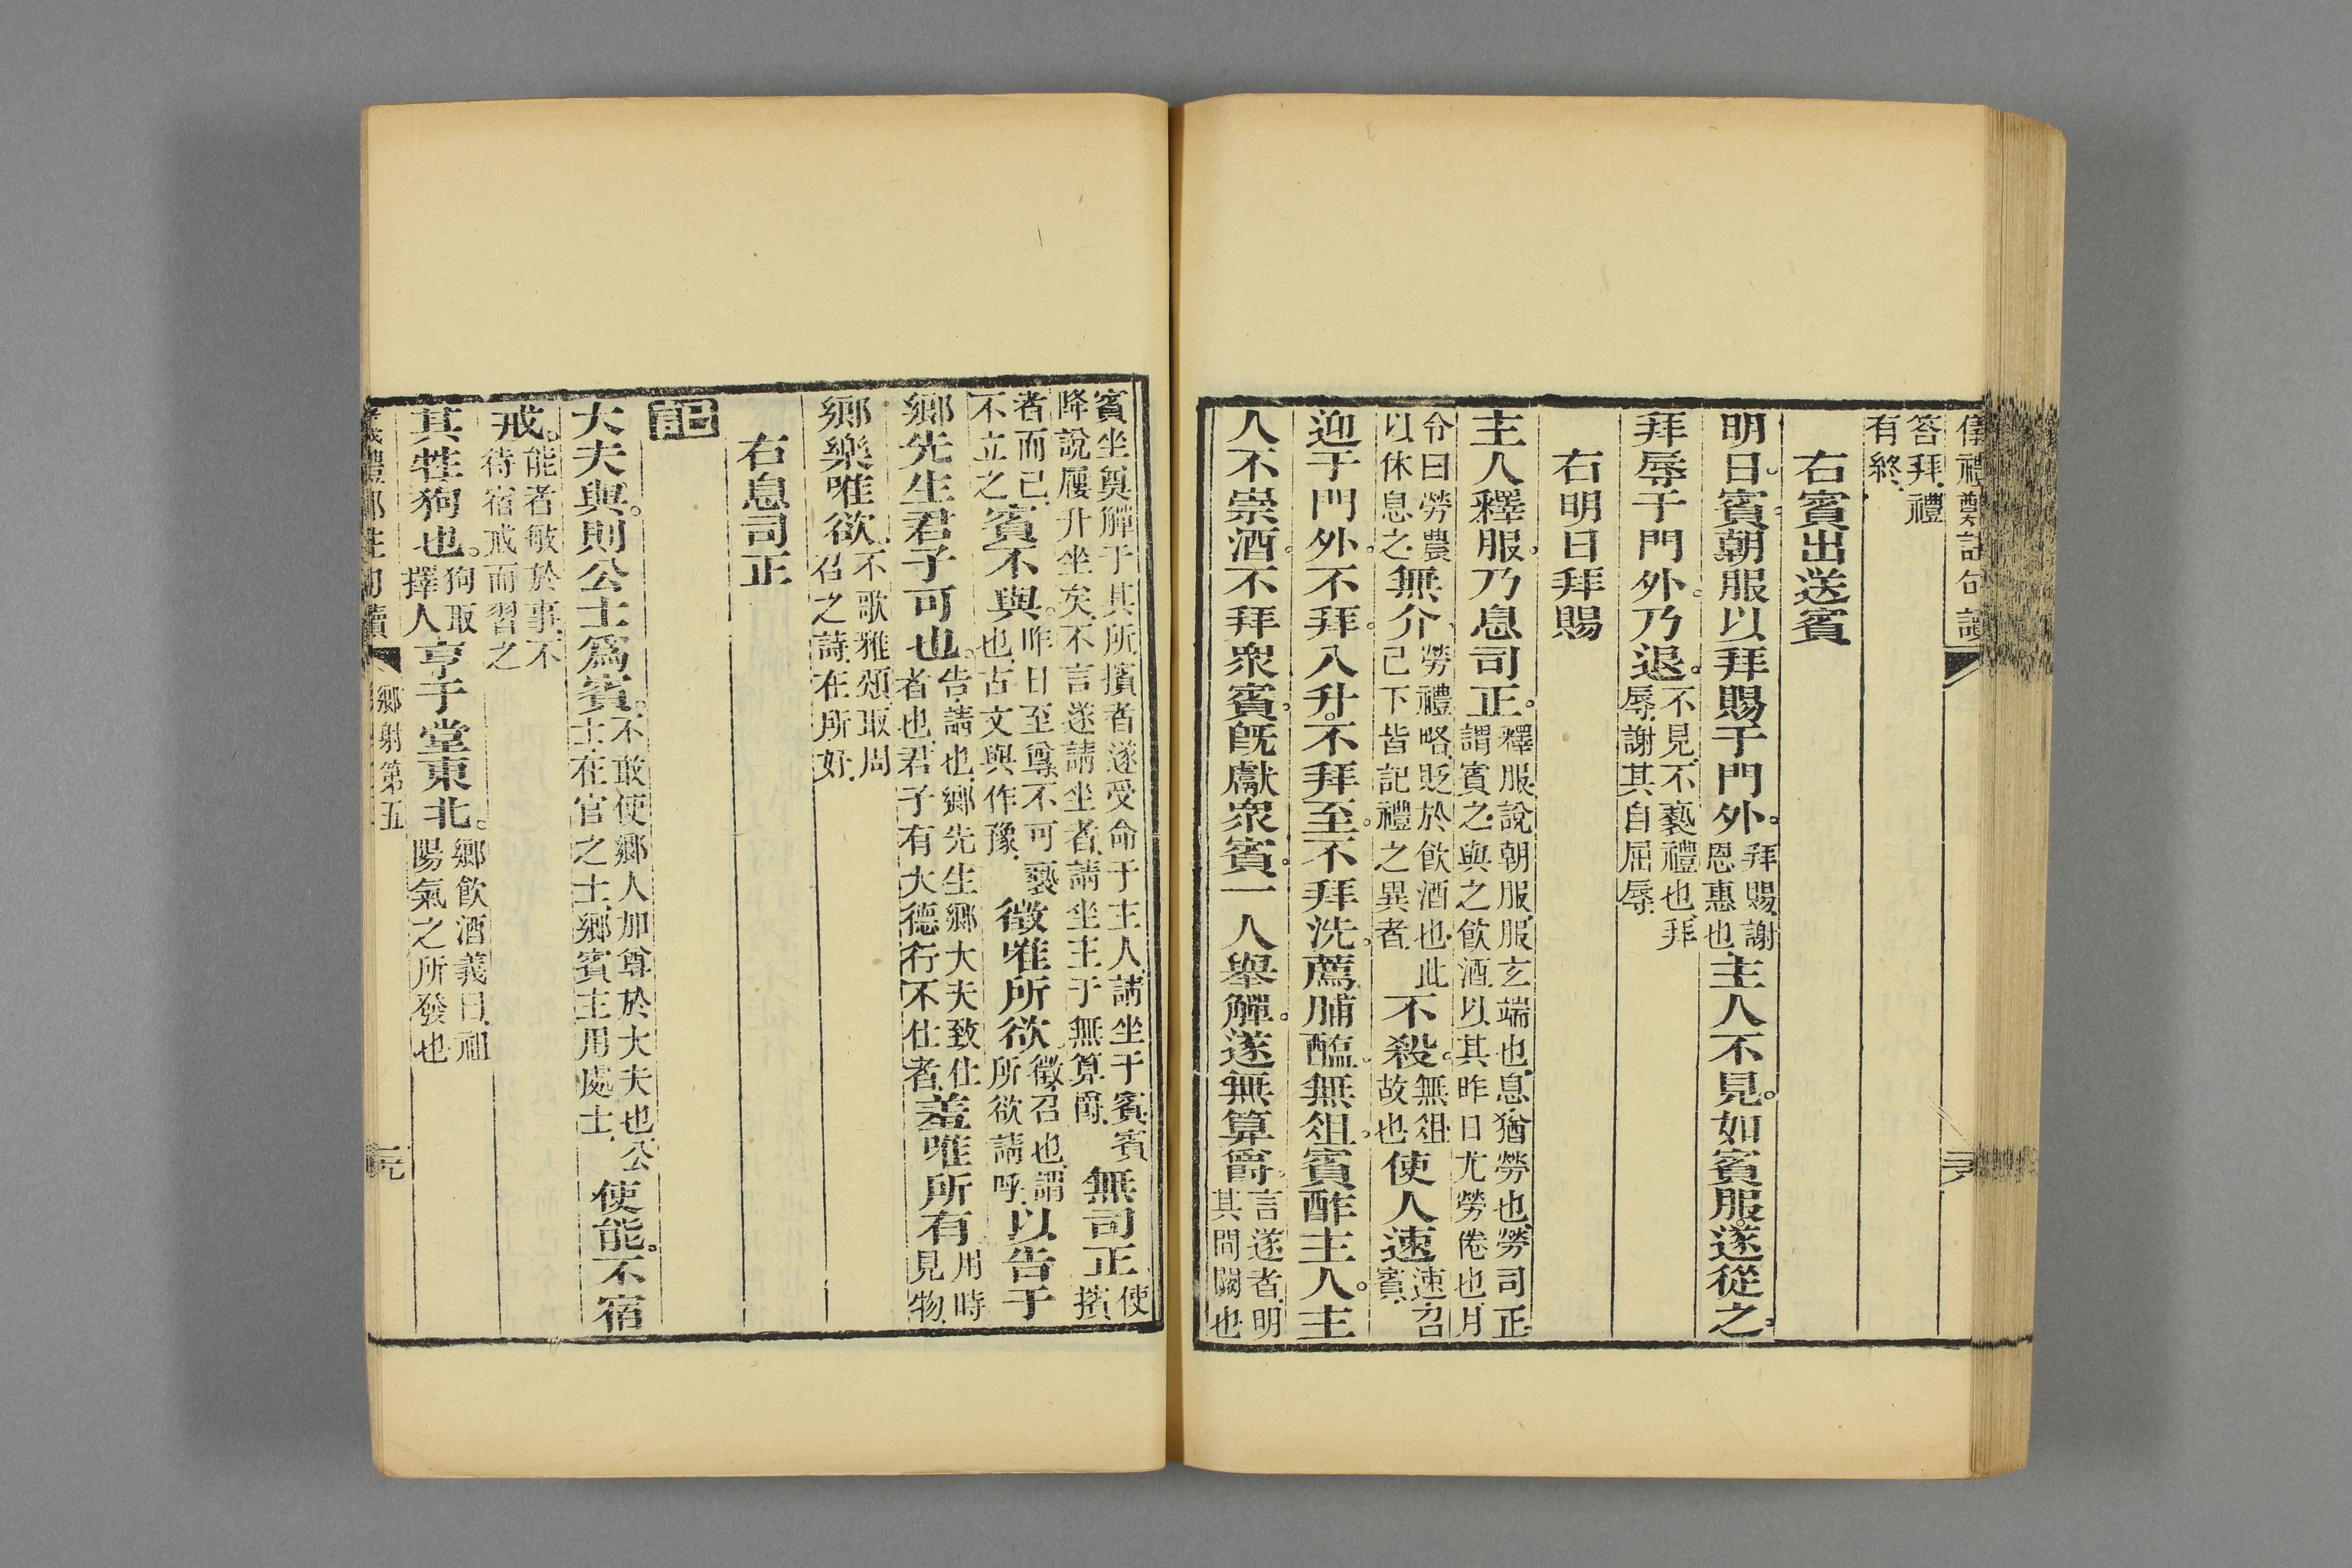 儀禮鄭註句讀
答拜禮
有終
右賓出送賓
明日賓朝服以拜賜于門外。拜賜謝恩惠也主人不見。如賓服。遂從之。
拜辱于門外。乃退。不見不褻禮也拜辱謝其自屈辱
右明日拜賜
主人釋服。乃息司正。釋服說朝服服玄端也息猶勞也勞司正謂賓之與之飲酒以其昨日尤勞倦也月
令曰勞農以休息之無介勞禮略貶於飲酒也此已下皆記禮之異者不殺。無俎故也使人速速召賓
迎于門外。不拜。入升。不拜至。不拜洗。薦脯醢。無俎。賓酢主人。主
人不崇酒。不拜衆賓。旣獻衆賓。一人舉觶。遂無算爵。言遂者明其間闕也
賓坐奠觶于其所擯者遂受命于主人請坐于賓賓降說屨升坐矣不言遂請坐者請坐主于無算爵無司正使擯
者而已不立之賓不與。昨日至尊不可褻也古文與作豫徵唯所欲徵召也謂所欲請呼以告于
鄉先生君子可也。告請也鄉先生鄉大夫致仕者也君子有大德行不仕者羞唯所有用時見物
鄉樂唯欲不歌雅頌取周召之詩在所好
右息司正
記
大夫與。則公士爲賓。不敢使鄉人加尊於大夫也公士在官之士鄉賓主用處士使能。不宿
戒。能者敏於事不待宿戒而習之
其牲狗也。狗取擇人亨于堂東北。鄉飲酒義曰祖陽氣之所發也
鄉射第五